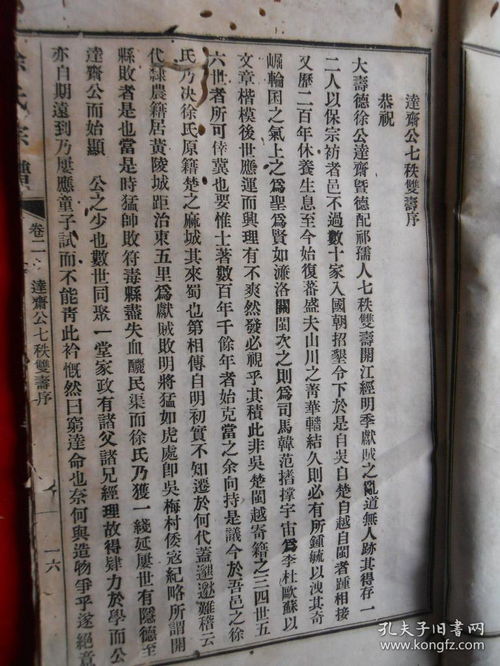 達齋公七秩雙壽序
恭祝
大壽德徐公達齋曁德配祁孺人七秩雙壽開江經明季獻賊之亂道無人跡其得存一
二人以保宗祊者邑不過數十家入國朝招墾令下於是自吳自楚自越自閩者踵相接
又歷二百年休養生息至今始復蕃盛夫山川之菁華轖結久則必有所鍾毓以洩其奇
崛輪囷之氣上之爲聖爲賢如濂洛關閩次之則爲司馬韓范撐宇宙爲李杜歐蘇以
文章楷模後世應運而興理有不爽然發必視乎其積此非吳楚閩越寄籍之三四世五
六世者所可倖冀也要惟士著數百年千餘年者始克當之余向持是議今於吾邑之徐
氏乃决徐氏原籍楚之麻城其來蜀也第相傳自明初實不知遷於何代蓋邈遼難稽云
代隸農籍居黃陵城距治東五里爲獻賊敗明將猛如虎處卽吳梅村倭寇紀略所謂開
縣敗者是也當是時猛帥敗符毒縣盡失血釃民渠而徐氏乃獲一綫延屢世有隱德至
達齋公而始顯 公之少也數世同聚一堂家政有諸父諸兄經理故得肆力於學而公
亦自期遠到乃屢應童子試而不能靑此衿慨然曰窮達命也奈何與造物爭乎遂絕意
徐氏宗譜
卷二
達齋公七秩雙壽序
一六
孔夫子旧書网